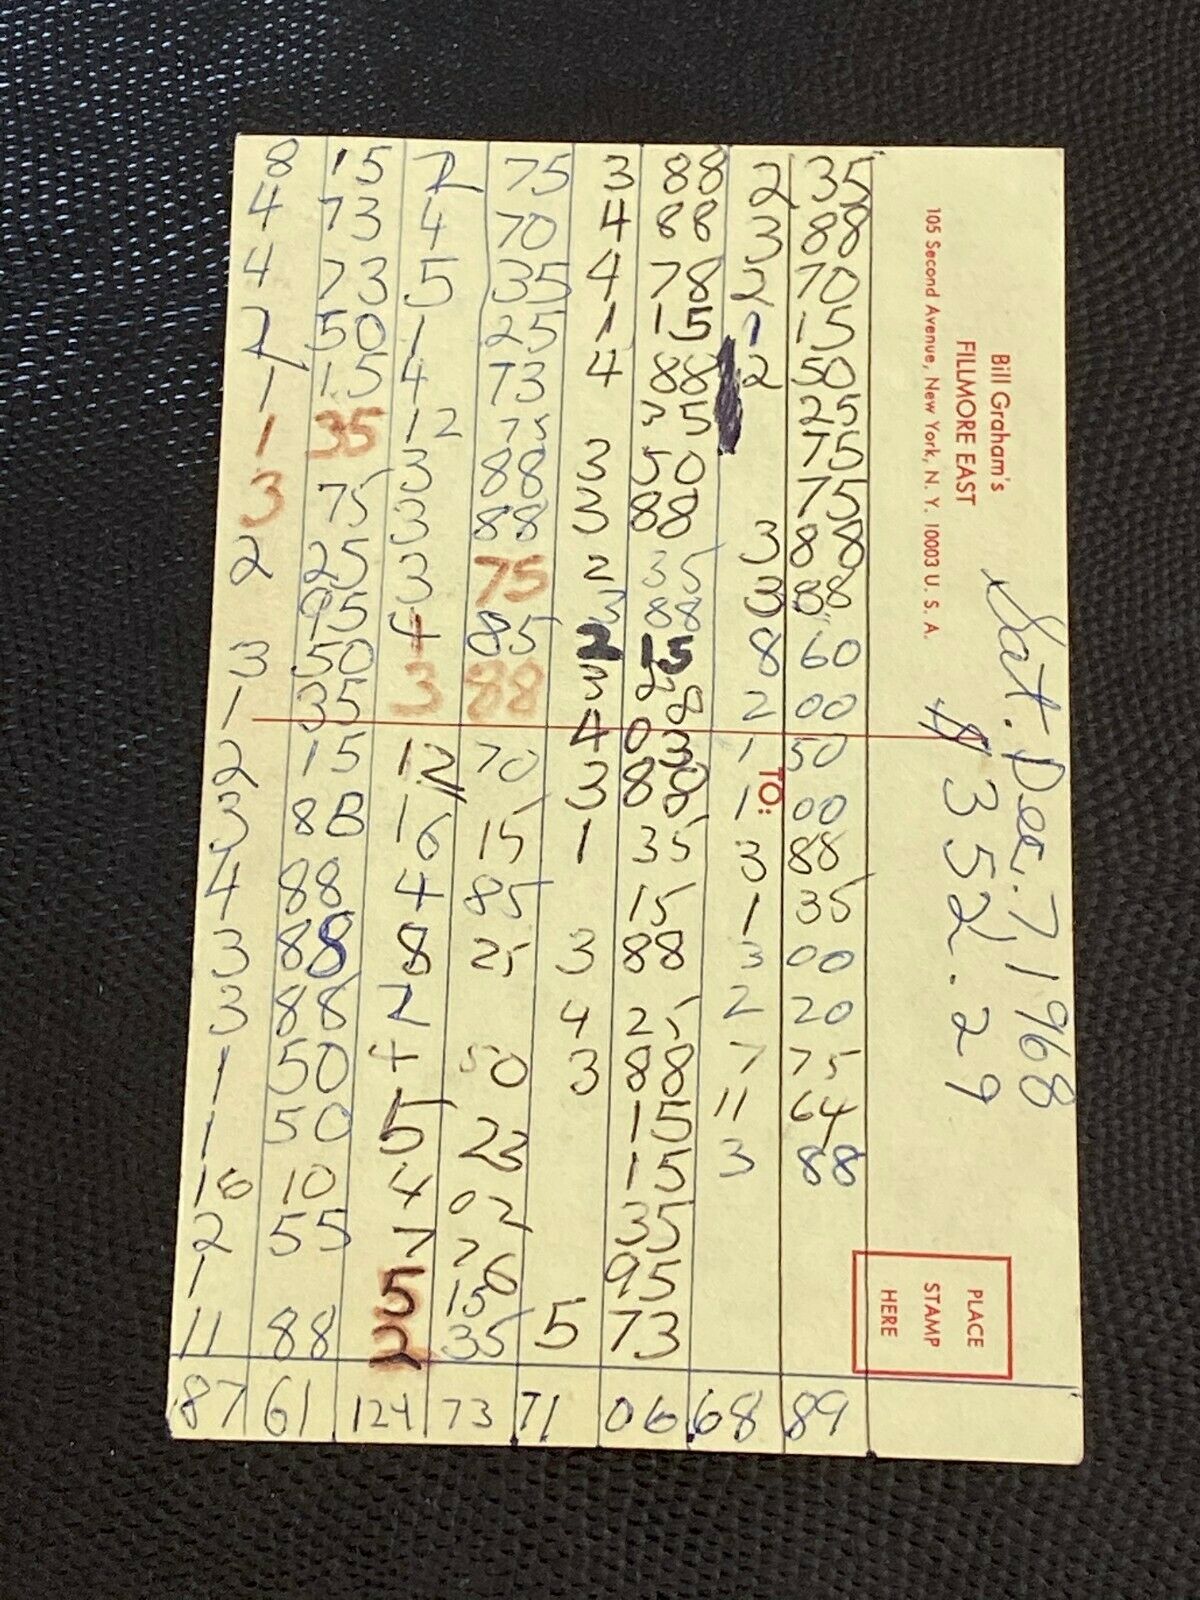 8 15 2 75 3 88 2 35
4 73 4 70 4 88 3 88
4 73 5 35 4 78 2 70
2 50 1 25 1 15 1 15
1 15 4 73 4 88 2 50
1 35 12 75 35 25
3 75 3 88 3 50 75
3 88 3 88 75
2 25 3 75 2 35 3 88
95 4 85 3 88 3 88
3 50 3 88 2 15 8 60
1 35 3 88 2 00
2 15 12 70 4 03 1 50
3 88 16 15 3 88 1 00
4 88 4 85 1 35 3 88
3 88 8 25 15 1 35
3 88 2 3 88 3 00
1 50 4 50 4 25 2 20
1 50 5 23 3 88 7 75
16 10 4 02 15 11 64
2 55 7 76 15 3 88
1 5 15 35
11 88 2 35 95
5 73
87 61 124 73 71 06 68 89
Bill Graham's
FILLMORE EAST
105 Second Avenue, New York, N. Y. 10003 U. S. A.
Sat. Dec. 7, 1968
$352.29
TO:
PLACE
STAMP
HERE